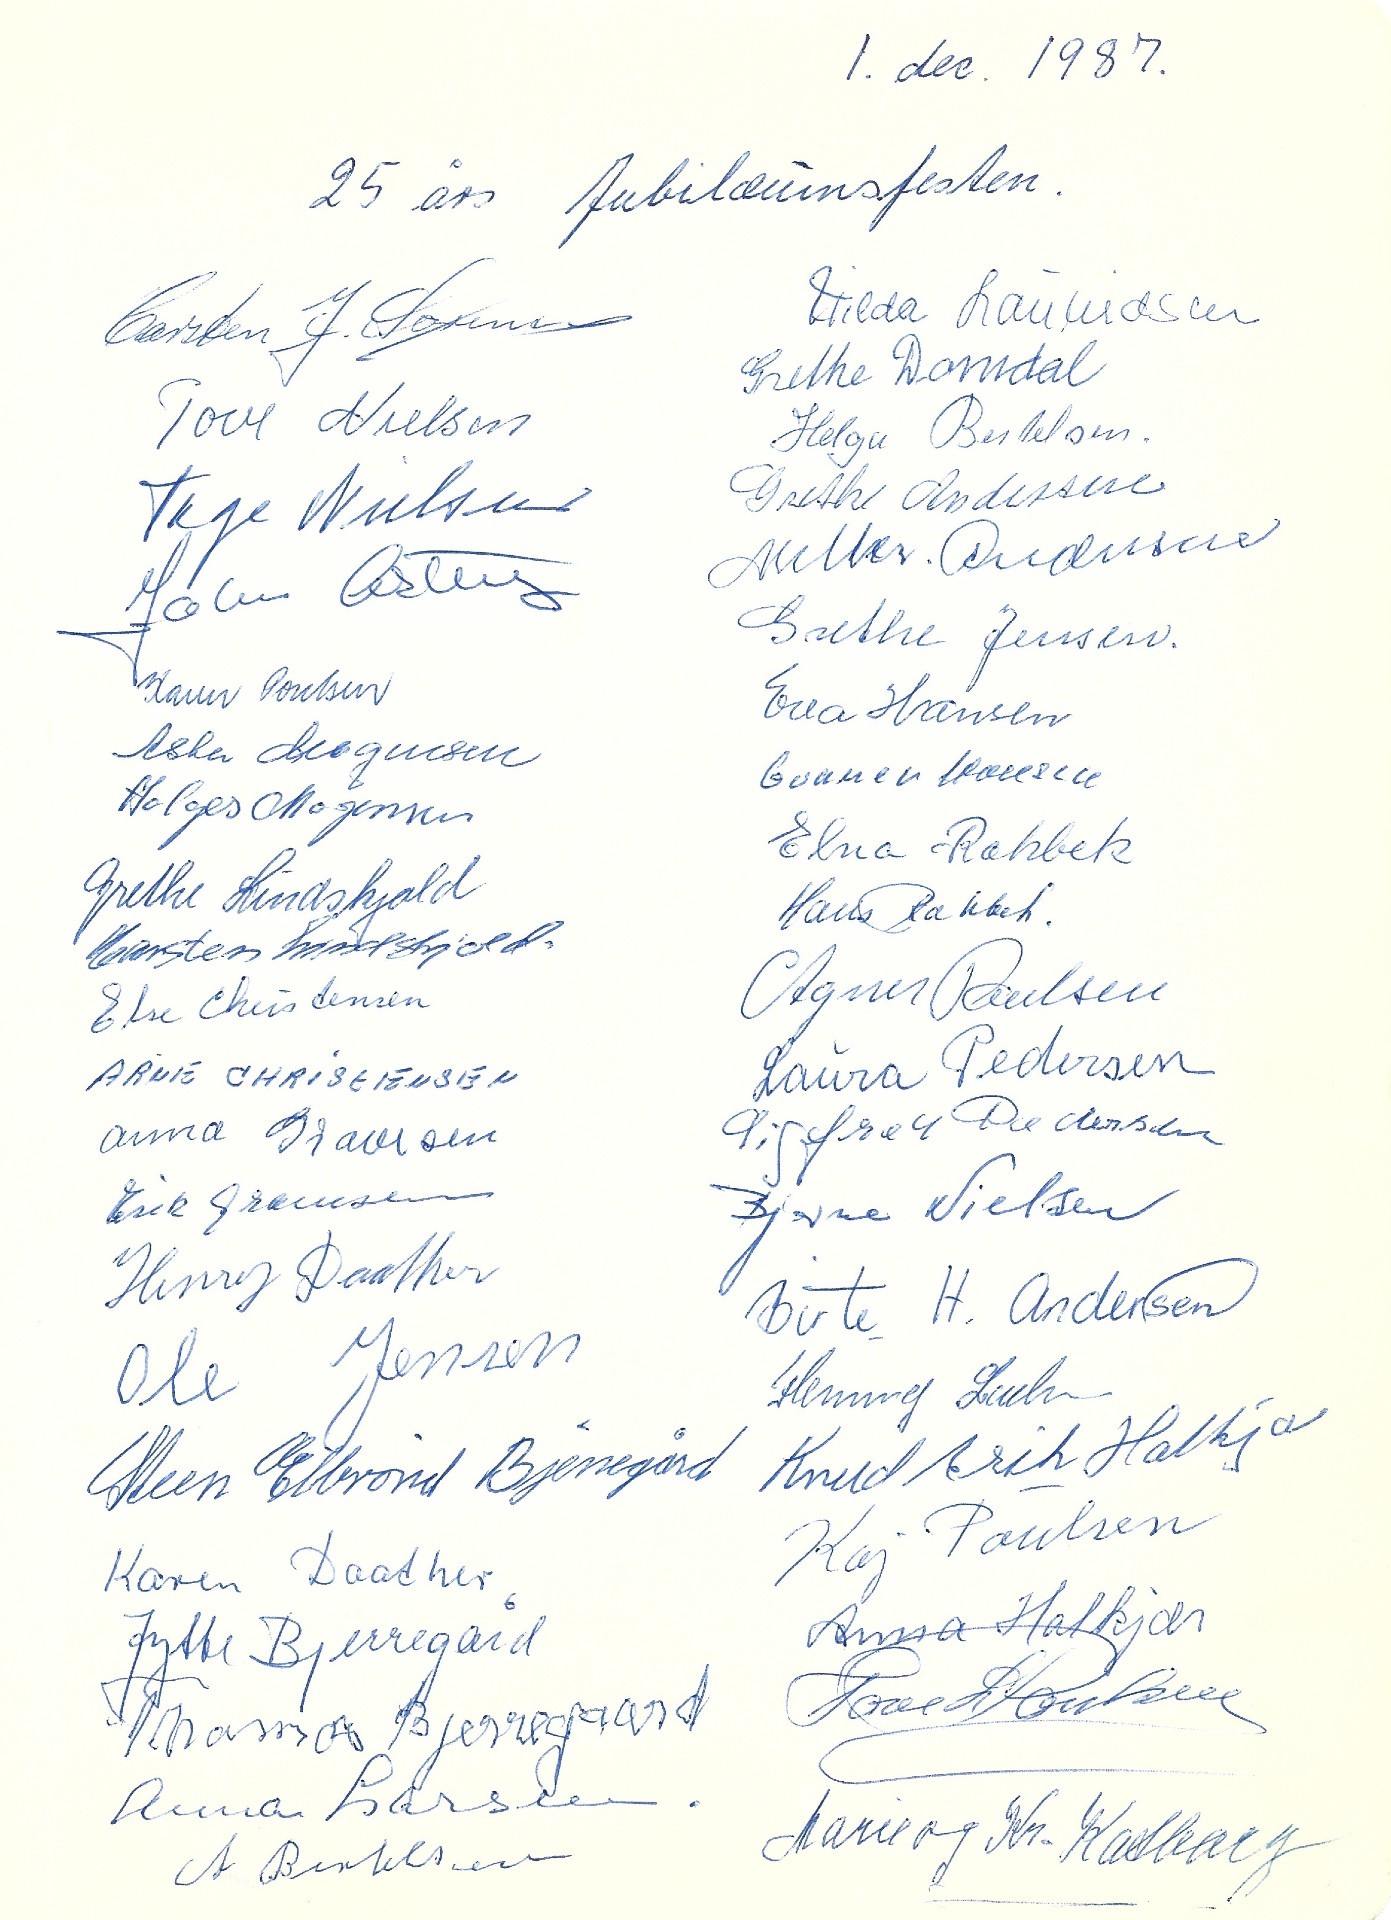 1. dec. 1987.
25 års Jubilæumsfesten.
Carsten J.
Tove Nielsen
Tage Nielsen
Karen Poulsen
Mogensen
Holger Mogensen
Grethe Lindskjold
Karsten Lindskjold.
Else Christensen
ARNE CHRISTENSEN
Anna Graversen
Erik Graversen
Henry Daather
Ole Jensen
Steen Bjerregård
Karen Daather
Jytte Bjerregård
Thomas Bjerregaard
Anna Larsen.
A Bertelsen
Hilda Lauridsen
Grethe Damdal
Helga Bertelsen.
Grethe Andersen
Andersen
Grethe Jensen.
Eva Hansen
Gunner Hansen
Elna Rahbek
Hans Rahbek.
Agner Poulsen
Laura Pedersen
Sigfred Pedersen
Bjarne Nielsen
Birte H. Andersen
Henning
Knud Erik Hatkjær
Kaj Poulsen
Anna Hatkjær
Tove Poulsen
Marie og Kr.